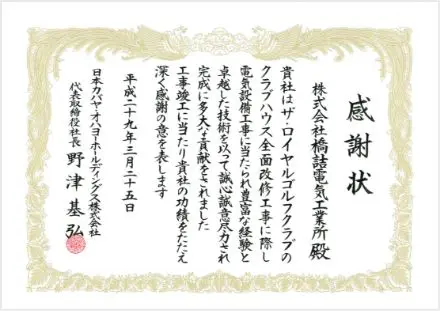 感謝状
株式会社橋詰電気工業所殿
貴社はザ・ロイヤルゴルフクラブの
クラブハウス全面改修工事に際し
電気設備工事に当たられ豊富な経験と
卓越した技術を以って誠心誠意尽力され
完成に多大な貢献をされました
工事竣工に当たり貴社の功績をたたえ
深く感謝の意を表します
平成二十九年三月二十五日
日本カバヤ・オハヨーホールディングス株式会社
代表取締役社長 野津基弘